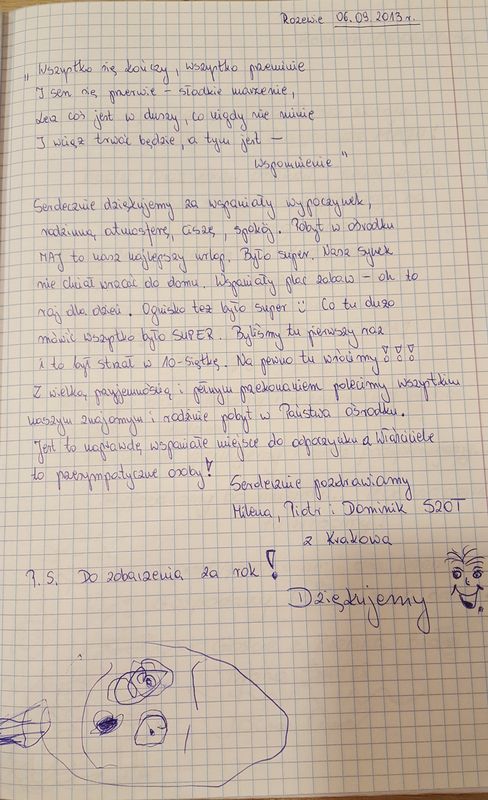 Rozewie 06.09.2013 r.
„Wszystko się kończy, wszystko przeminie
I sen się przerwie – słodkie marzenie,
Lecz coś jest w duszy, co nigdy nie minie
I wciąż trwać będzie, a tym jest –
wspomnienie"
Serdecznie dziękujemy za wspaniały wypoczynek,
rodzinną atmosferę, ciszę, spokój. Pobyt w ośrodku
MAJ to nasz najlepszy urlop. Było super. Nasz synek
nie chciał wracać do domu. Wspaniały plac zabaw – oh to
raj dla dzieci. Ognisko też było super Co tu dużo
mówić wszystko było SUPER. Byliśmy tu pierwszy raz
i to był strzał w 10-siątkę. Na pewno tu wrócimy!!!
Z wielką przyjemnością i pełnym przekonaniem polecimy wszystkim
naszym znajomym i rodzinie pobyt w Państwa ośrodku.
Jest to naprawdę wspaniałe miejsce do odpoczynku a Właściciele
to przesympatyczne osoby!
Serdecznie pozdrawiamy
Milena, Piotr i Dominik SZOT
z Krakowa
P.S. Do zobaczenia za rok!
Dziękujemy